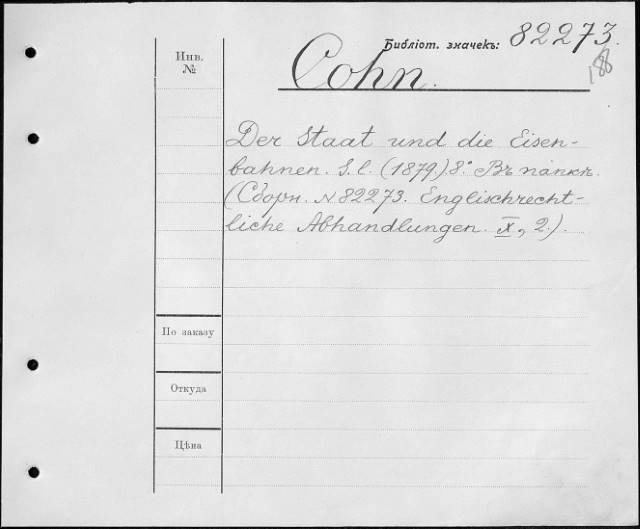 Инв. №
Библіот. значекъ: 82273.
188
Cohn.
Der Staat und die Eisen-
bahnen. S. l. (1879). 8° Въ папкѣ.
(Сборн. N 82273. Englischrecht-
liche Abhandlungen. X, 2.).
По заказу
Откуда
Цѣна